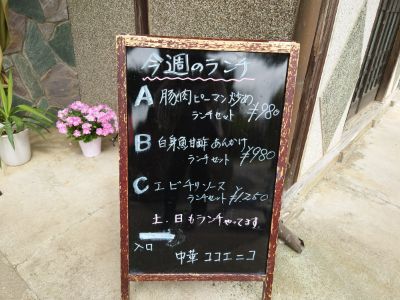 今週のランチ
A 豚肉ピーマン炒め
ランチセット ¥980
B 白身魚甘酢あんかけ
ランチセット ¥980
C エビチリソース
ランチセット ¥1,250
土、日もランチやってます
入口
中華 ココエニコ